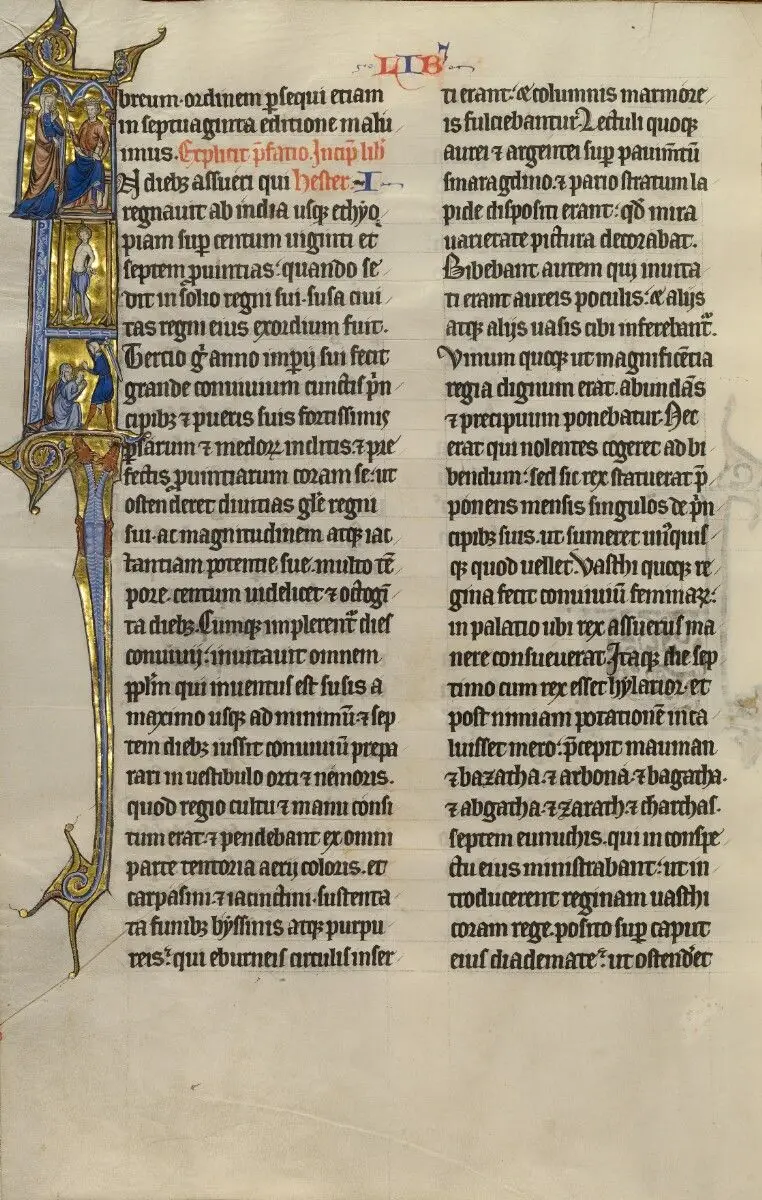 LIBꝰ
breum·ordinem ꝑsequi etiam
in septuaginta editione malu
imus. Explicit p̄fatio. Incip̄ lib̄
N diebꝫ assueri qui Hester. I
regnauit ab india usqꝫ ethyo
piam sup̄ centum uiginti et
septem ꝓuintias: quando se
dit in solio regni sui·susa ciui
tas regni eius exordium fuit.
Tertio gͥ anno imꝑij sui fecit
grande conuiuium cunctis p̄n
cipibꝫ ⁊ pueris suis fortissimis
ꝑsarum ⁊ medoꝝ inclitis·⁊ pre
fectis ꝓuintiarum coram se·ut
ostenderet diuitias gl̄e regni
sui·ac magnitudinem atqꝫ iac
tantiam potentie sue·multo tē
pore·centum uidelicet ⁊ octogī
ta diebꝫ. Cumqꝫ implerent̄ dies
conuiuij: inuitauit omnem
pp̄lm̄ qui inuentus est susis a
maximo usqꝫ ad minimū·⁊ sep
tem diebꝫ iussit conuiuiū prepa
rari in uestibulo orti ⁊ nemoris.
quod regio cultu ⁊ manu consi
tum erat·⁊ pendebant ex omni
parte tentoria aerij coloris·et
carpasini·⁊ iacinctini·sustenta
ta funibꝫ byssinis atqꝫ purpu
reis: qui eburneis circulis inser
ti erant: & columnis marmore
is fulciebantur. Lectuli quoqꝫ
aurei ⁊ argentei sup̄ pauim̄tū
smaragdino·⁊ pario stratum la
pide dispositi erant: qd̄ mira
uarietate pictura decorabat.
Bibebant autem qui inuita
ti erant aureis poculis: & alijs
atqꝫ alijs uasis cibi inferebant̄.
Vinum quoqꝫ ut magnificētia
regia dignum erat·abundās
⁊ precipuum ponebatur. Nec
erat qui nolentes cogeret ad bi
bendum: sed sic rex statuerat p̄
ponens mensis singulos de p̄n
cipibꝫ suis·ut sumeret un̄quis
qꝫ quod uellet. Vasthi quoqꝫ re
gina fecit conuiuiū feminaꝝ:
in palatio ubi rex assuerus ma
nere consueuerat. Itaqꝫ die sep
timo cum rex esset hylarior·et
post nimiam potationē inca
luisset mero: p̄cepit mauman
⁊ bazatha·⁊ arbona·⁊ bagatha·
⁊ abgatha·⁊ zarath·⁊ charchas·
septem eunuchis·qui in conspe
ctu eius ministrabant: ut in
troducerent reginam uasthi
coram rege·posito sup̄ caput
eius diademate: ut ostend̄et